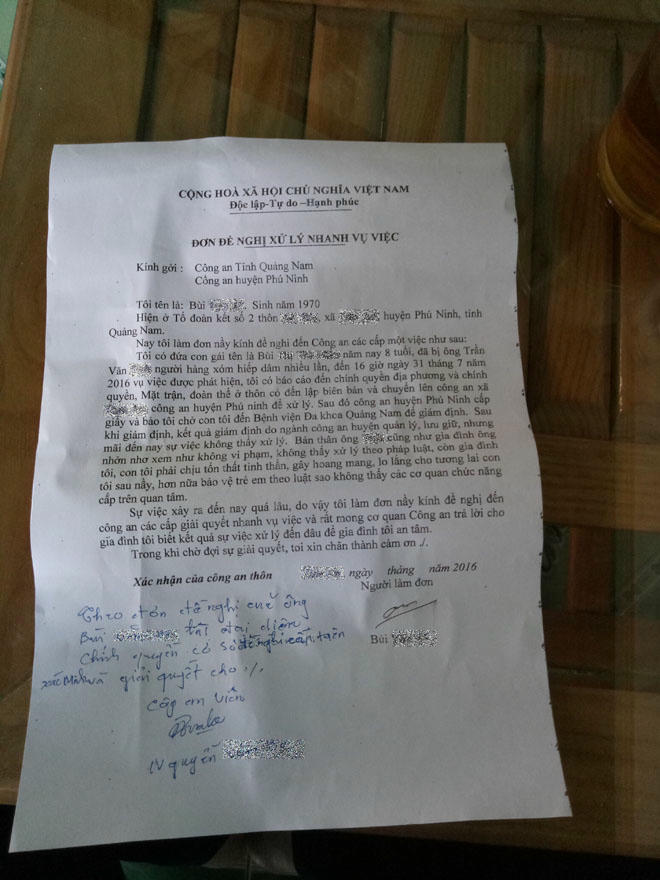 CỘNG HOÀ XÃ HỘI CHỦ NGHĨA VIỆT NAM
Độc lập-Tự do –Hạnh phúc
ĐƠN ĐỀ NGHỊ XỬ LÝ NHANH VỤ VIỆC
Kính gởi : Công an Tỉnh Quảng Nam
Công an huyện Phú Ninh
Tôi tên là: Bùi . Sinh năm 1970
Hiện ở Tổ đoàn kết số 2 thôn , xã , huyện Phú Ninh, tỉnh
Quảng Nam.
Nay tôi làm đơn nầy kính đề nghi đến Công an các cấp một việc như sau:
Tôi có đứa con gái tên là Bùi năm nay 8 tuổi, đã bị ông Trần
Văn người hàng xóm hiếp dâm nhiều lần, đến 16 giờ ngày 31 tháng 7 năm
2016 vụ việc được phát hiện, tôi có báo cáo đến chính quyền địa phương và chính
quyền, Mặt trận, đoàn thể ở thôn có đến lập biên bản và chuyển lên công an xã
công an huyện Phú ninh để xử lý. Sau đó công an huyện Phú Ninh cấp
giấy và bảo tôi chở con tôi đến Bệnh viện Đa khoa Quảng Nam để giám định. Sau
khi giám định, kết quả giám định do ngành công an huyện quản lý, lưu giữ, nhưng
mãi đến nay sự việc không thấy xử lý. Bản thân ông cũng như gia đình ông
nhởn nhơ xem như không vi phạm, không thấy xử lý theo pháp luật, còn gia đình
tôi, con tôi phải chịu tổn thất tinh thần, gây hoang mang, lo lắng cho tương lai con
tôi sau nầy, hơn nữa bảo vệ trẻ em theo luật sao không thấy các cơ quan chức năng
cấp trên quan tâm.
Sự việc xảy ra đến nay quá lâu, do vậy tôi làm đơn nầy kính đề nghị đến
công an các cấp giải quyết nhanh vụ việc và rất mong cơ quan Công an trả lời cho
gia đình tôi biết kết quả sự việc xử lý đến đâu để gia đình tôi an tâm.
Trong khi chờ đợi sự giải quyết, toi xin chân thành cảm ơn ./.
Xác nhận của công an thôn , ngày tháng năm 2016
Người làm đơn
Theo đơn đề nghị cuả ông
Bùi
Chính quyền có sở đề nghị cấp trên
giải quyết cho ./.
Công an viên
Bùi